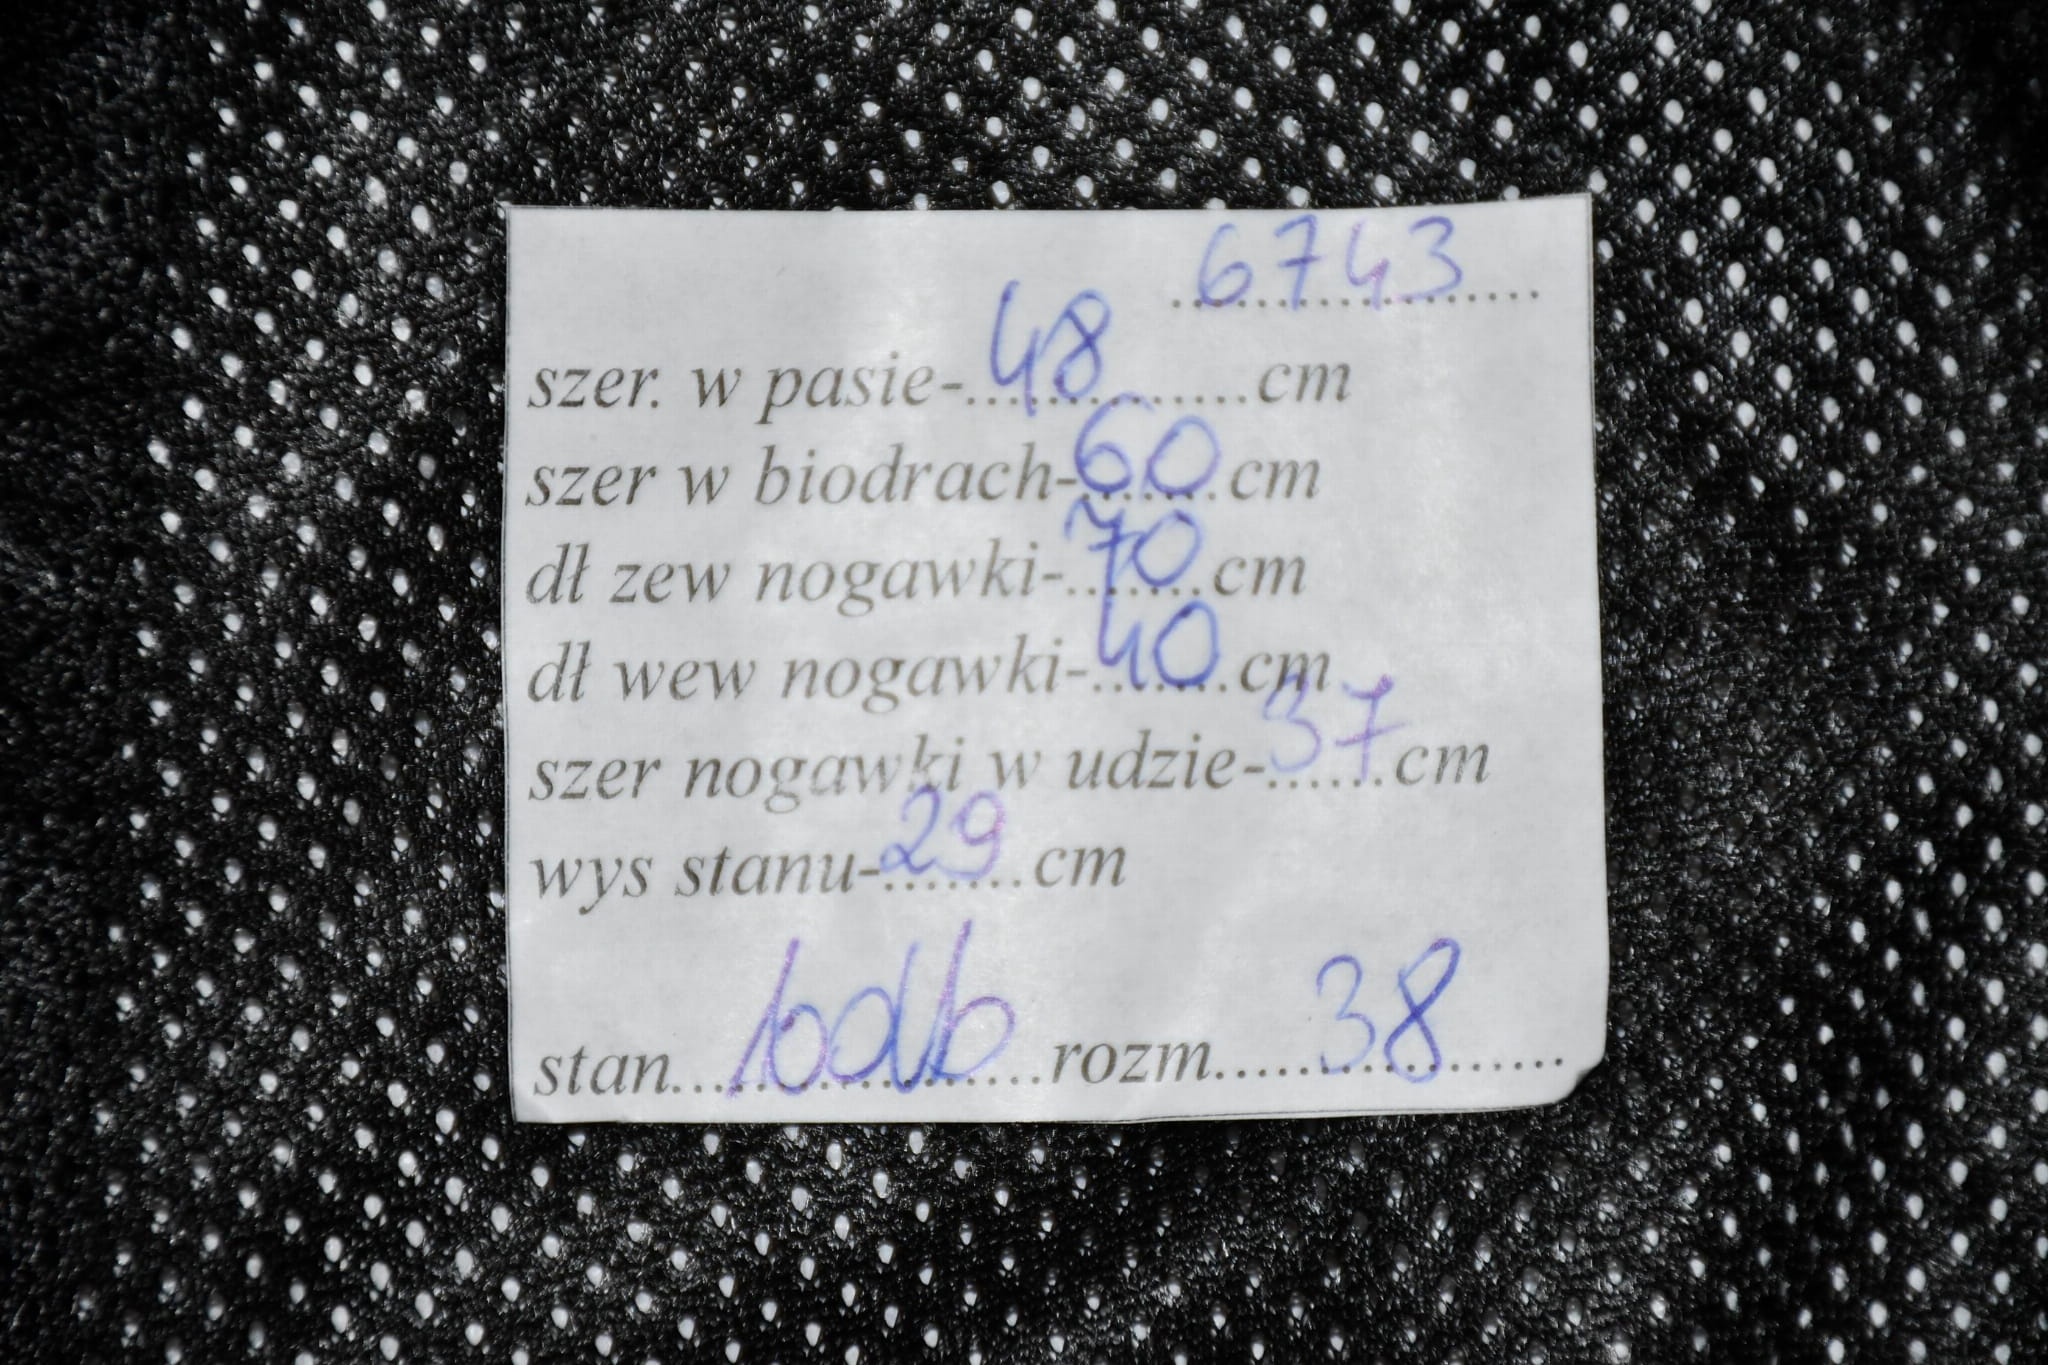 6743
szer. w pasie-48cm
szer w biodrach-60cm
dł zew nogawki-70cm
dł wew nogawki-40cm
szer nogawki w udzie-37cm
wys stanu-29cm
stan bdb rozm 38